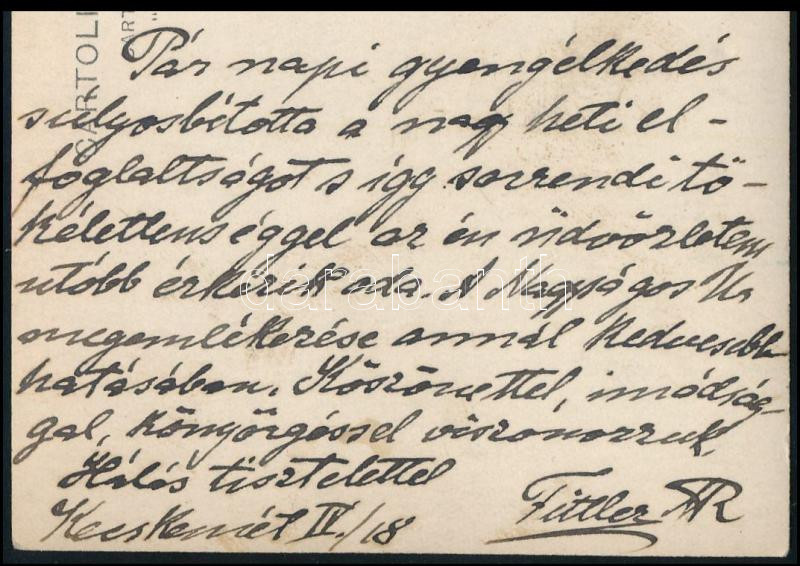 SARTOLI
PART
Pár napi gyengélkedés
sulyosbította a nagy heti el-
foglaltságot s így sorrendi tö-
kéletlenséggel az én üdvözletem
utóbb érkezik oda. A Nagyságos Úr
megemlékezése annál kedvesebb
hatásában. Köszönettel, imádság-
gal, könyörgéssel viszonozzuk.
Hálás tisztelettel
Kecskemét IV./18
Fittler
darabanth